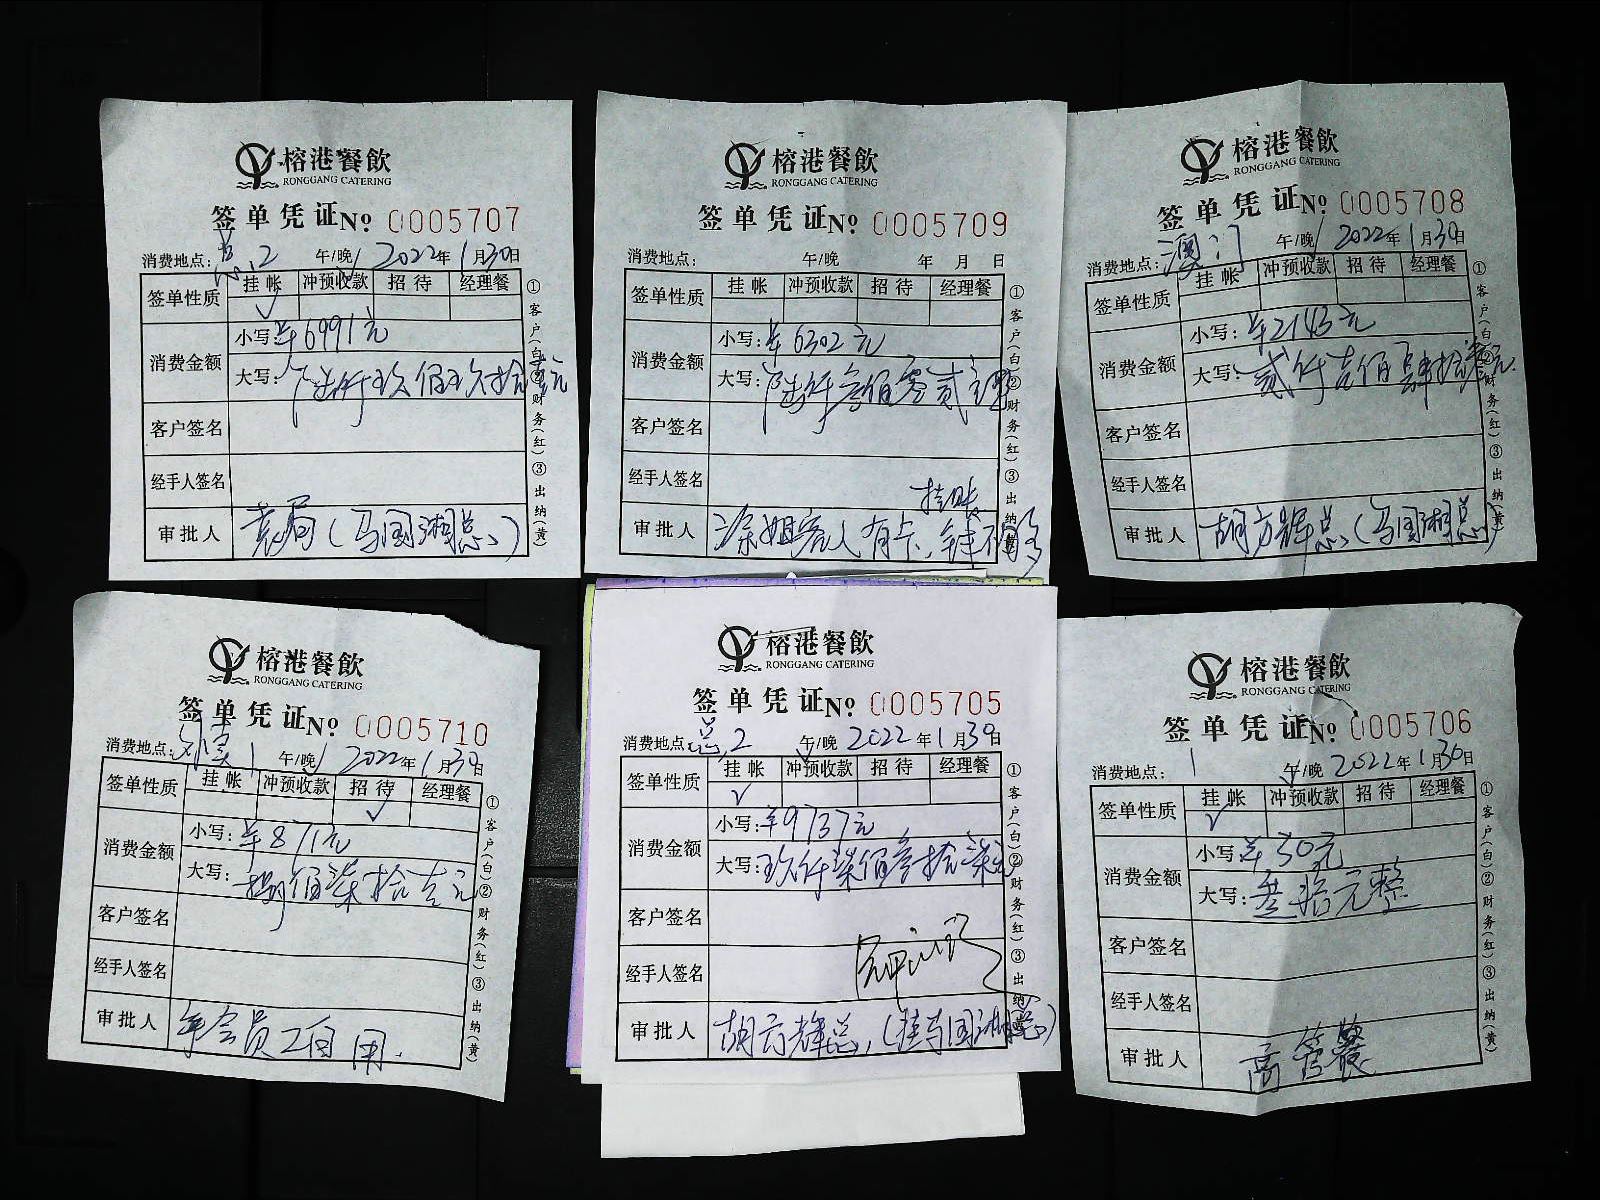 榕港餐飲
RONGGANG CATERING
签单凭证№ 0005707
消费地点: 总2 午/晚 2022年1月30日
签单性质 挂帐 冲预收款 招待 经理餐
✓
消费金额 小写: ¥6991元
大写: 陆仟玖佰玖拾壹元
客户签名
经手人签名
审批人 袁局(马国湘总)
①客户(白)②财务(红)③出纳(黄)
榕港餐飲
RONGGANG CATERING
签单凭证№ 0005709
消费地点: 午/晚 年 月 日
签单性质 挂帐 冲预收款 招待 经理餐
消费金额 小写: ¥6302元
大写: 陆仟叁佰零贰元
客户签名
经手人签名
挂账
审批人 涂姐客人有卡
①客户(白)②财务(红)③出纳(黄)
榕港餐飲
RONGGANG CATERING
签单凭证№ 0005708
消费地点: 澳门 午/晚 2022年1月30日
签单性质 挂帐 冲预收款 招待 经理餐
消费金额 小写: ¥2143元
大写: 贰仟壹佰肆拾叁元
客户签名
经手人签名
审批人 胡方辉总(马国湘总)
①客户(白)②财务(红)③出纳(黄)
榕港餐飲
RONGGANG CATERING
签单凭证№ 0005710
消费地点: 1 午/晚 2022年1月30日
签单性质 挂帐 冲预收款 招待 经理餐
✓
消费金额 小写: ¥871元
大写: 捌佰柒拾壹元
客户签名
经手人签名
审批人 年会员工自用.
①客户(白)②财务(红)③出纳(黄)
榕港餐飲
RONGGANG CATERING
签单凭证№ 0005705
消费地点: 总2 午/晚 2022年1月30日
签单性质 挂帐 冲预收款 招待 经理餐
✓
消费金额 小写: ¥9737元
大写: 玖仟柒佰叁拾柒元
客户签名
经手人签名
审批人 胡方辉总(挂马国湘总)
①客户(白)②财务(红)③出纳(黄)
榕港餐飲
RONGGANG CATERING
签单凭证№ 0005706
消费地点: 1 午/晚 2022年1月30日
签单性质 挂帐 冲预收款 招待 经理餐
✓
消费金额 小写: ¥30元
大写: 叁拾元整
客户签名
经手人签名
审批人 高管餐
①客户(白)②财务(红)③出纳(黄)